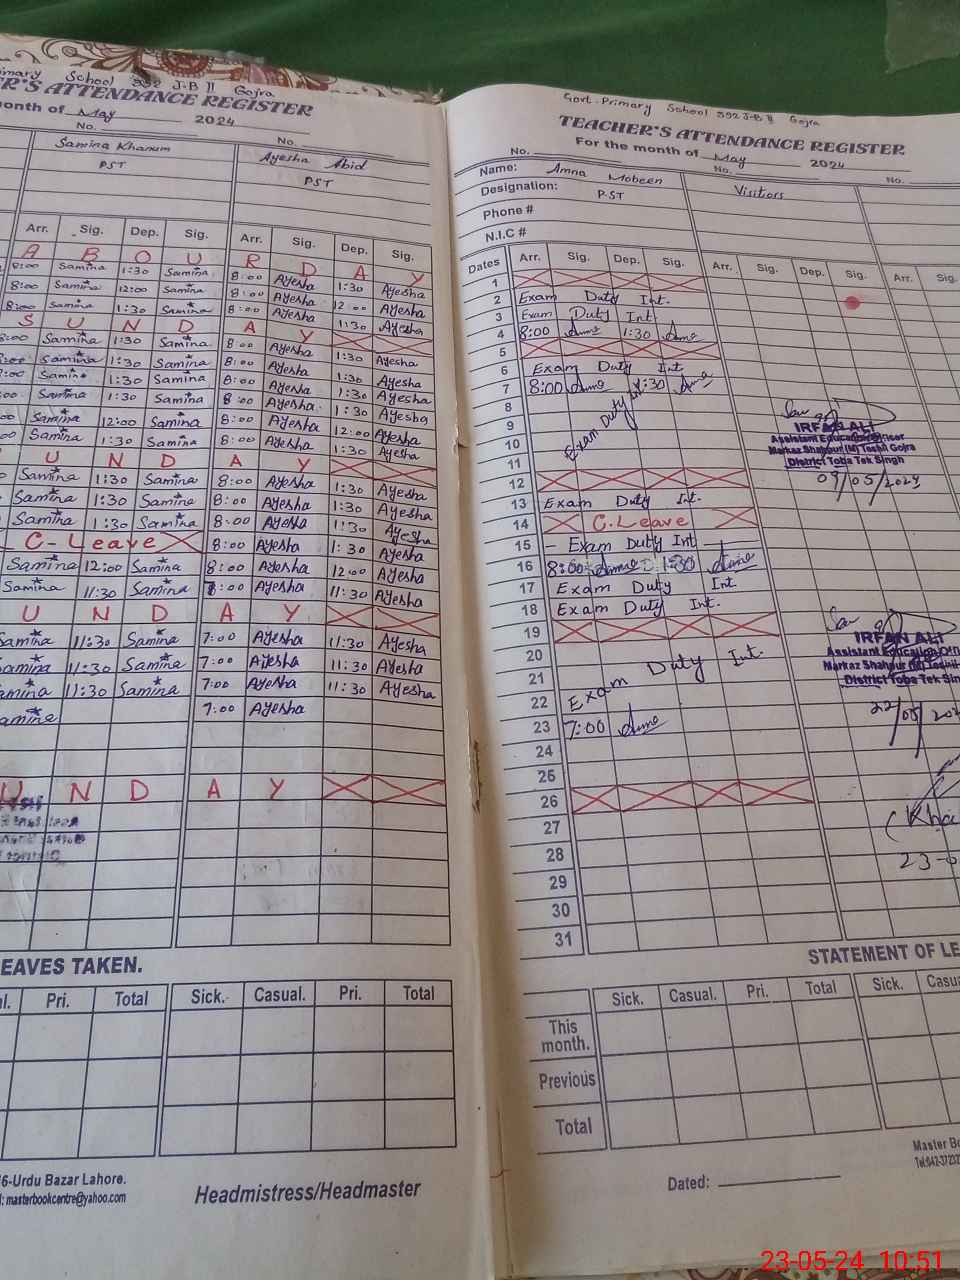 Primary School 392 J-B II Gojra
ER'S ATTENDANCE REGISTER
month of May 2024
No. No.
Samina Khanum Ayesha Abid
PST PST
Arr. Sig. Dep. Sig. Arr. Sig. Dep. Sig.
A B O U R D A Y
8:00 Samina 1:30 Samina 8:00 Ayesha 1:30 Ayesha
8:00 Samina 12:00 Samina 8:00 Ayesha 12:00 Ayesha
8:00 Samina 1:30 Samina 8:00 Ayesha 1:30 Ayesha
S U N D A Y
8:00 Samina 1:30 Samina 8:00 Ayesha 1:30 Ayesha
8:00 Samina 1:30 Samina 8:00 Ayesha 1:30 Ayesha
8:00 Samina 1:30 Samina 8:00 Ayesha 1:30 Ayesha
:00 Samina 1:30 Samina 8:00 Ayesha 1:30 Ayesha
00 Samina 12:00 Samina 8:00 Ayesha 12:00 Ayesha
00 Samina 1:30 Samina 8:00 Ayesha 1:30 Ayesha
U N D A Y
Samina 1:30 Samina 8:00 Ayesha 1:30 Ayesha
Samina 1:30 Samina 8:00 Ayesha 1:30 Ayesha
Samina 1:30 Samina 8:00 Ayesha 1:30 Ayesha
C-Leave 8:00 Ayesha 1:30 Ayesha
Samina 12:00 Samina 8:00 Ayesha 12:00 Ayesha
Samina 11:30 Samina 7:00 Ayesha 11:30 Ayesha
U N D A Y
Samina 11:30 Samina 7:00 Ayesha 11:30 Ayesha
Samina 11:30 Samina 7:00 Ayesha 11:30 Ayesha
Samina 11:30 Samina 7:00 Ayesha 11:30 Ayesha
Samina 7:00 Ayesha
U N D A Y
LEAVES TAKEN.
Pri. Total Sick. Casual. Pri. Total
6-Urdu Bazar Lahore.
masterbookcentre@yahoo.com
Headmistress/Headmaster
Govt. Primary School 392 J-B II Gojra
TEACHER'S ATTENDANCE REGISTER
For the month of May 2024
No. No. No.
Name: Amna Mobeen Visitiors
Designation: PST
Phone #
N.I.C #
Dates Arr. Sig. Dep. Sig. Arr. Sig. Dep. Sig. Arr. Sig.
1
2 Exam Duty Int.
3 Exam Duty Int
4 8:00 1:30
5
6 Exam Duty Int.
7 8:00 1:30
8
9 Exam Duty Int
10
11
12
13 Exam Duty Int.
14 C.Leave
15 Exam Duty Int
16 8:00 1:30
17 Exam Duty Int
18 Exam Duty Int.
19
20
21 Exam Duty Int.
22
23 7:00
24
25
26
27
28
29
30
31
IRFAN ALI
Assistant Education Officer
Markaz Shahpur (M) Tehsil Gojra
District Toba Tek Singh
09/05/2024
IRFAN ALI
Assistant Education
Markaz Shahpur (M) Tehsil
District Toba Tek Singh
22/05/202
23-0
STATEMENT OF LE
Sick. Casual. Pri. Total Sick. Casu
This month.
Previous
Total
Master Bo
Dated:
23-05-24 10:51